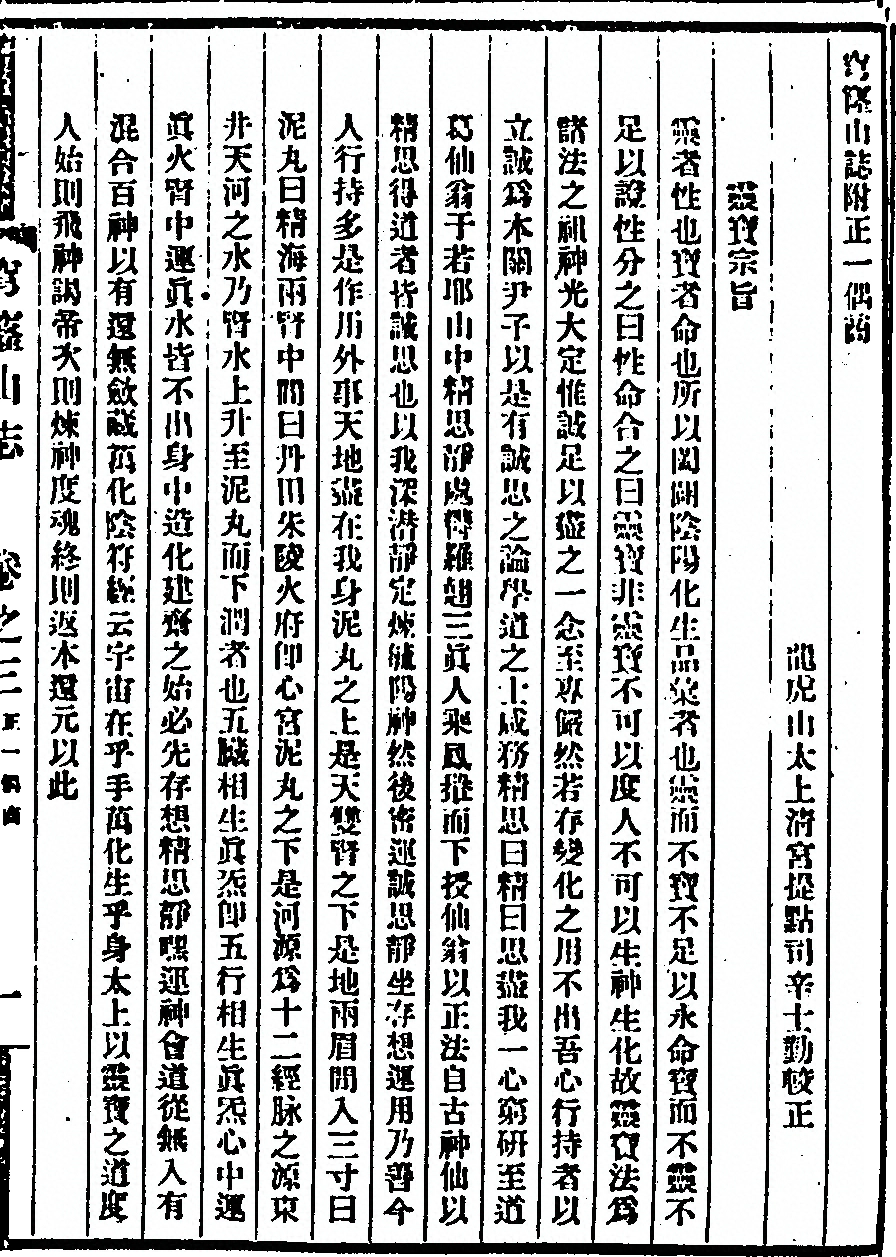 穹窿山誌附正一偶商
龍虎山太上清宮提點司辛士勤較正
靈寶宗旨
靈者性也寶者命也所以闔闢陰陽化生品彙者也靈而不寶不足以永命寶而不靈不
足以證性分之曰性命合之曰靈寶非靈寶不可以度人不可以生神生化故靈寶法爲
諸法之祖神光大定惟誠足以盡之一念至專儼然若存變化之用不出吾心行持者以
立誠爲本關尹子以是有誠思之論學道之士咸務精思曰精曰思盡我一心窮研至道
葛仙翁于若耶山中精思靜處得羅翹三眞人乘鳳輦而下授仙翁以正法自古神仙以
精思得道者皆誠思也以我深潛靜定煉毓陽神然後密運誠思靜坐存想運用乃善今
人行持多是作用外事天地盡在我身泥丸之上是天雙腎之下是地兩眉間入三寸曰
泥丸曰精海兩腎中間曰丹田朱陵火府卽心宮泥丸之下是河源爲十二經脉之源東
井天河之水乃腎水上升至泥丸而下潤者也五臟相生眞炁卽五行相生眞炁心中運
眞火腎中運眞水皆不出身中造化建齋之始必先存想精思靜嘿運神會道從無入有
混合百神以有還無斂藏萬化陰符經云宇宙在乎手萬化生乎身太上以靈寶之道度
人始則飛神謁帝次則煉神度魂終則返本還元以此
穹窿山志
卷之三
正一偶商
一